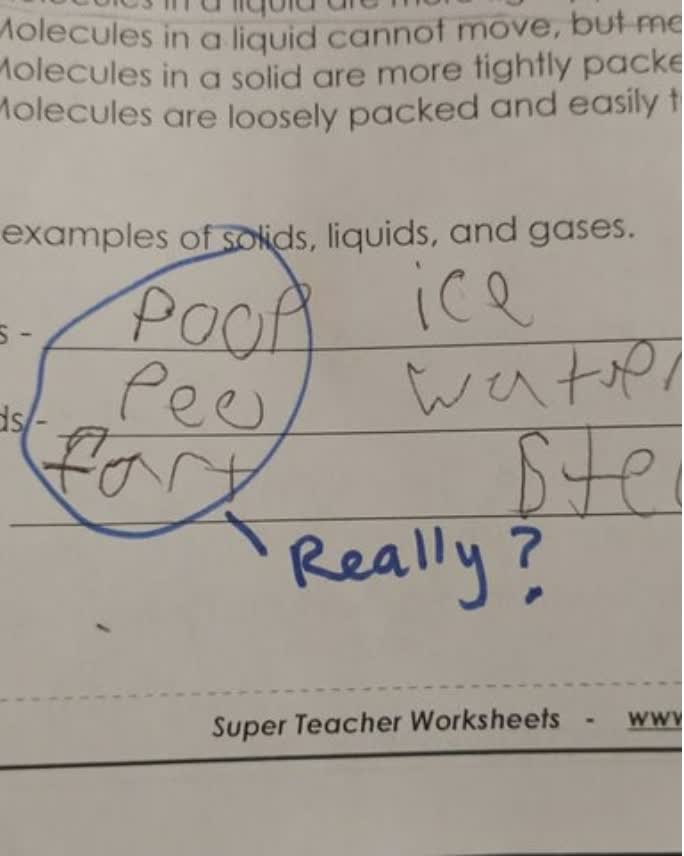 Molecules in a liquid cannot move, but
Molecules in a solid are more tightly
Molecules are loosely packed and easily
examples of solids, liquids, and gases.
s - Poop ice
ds - Pee water
fart
Really?
Super Teacher Worksheets - www